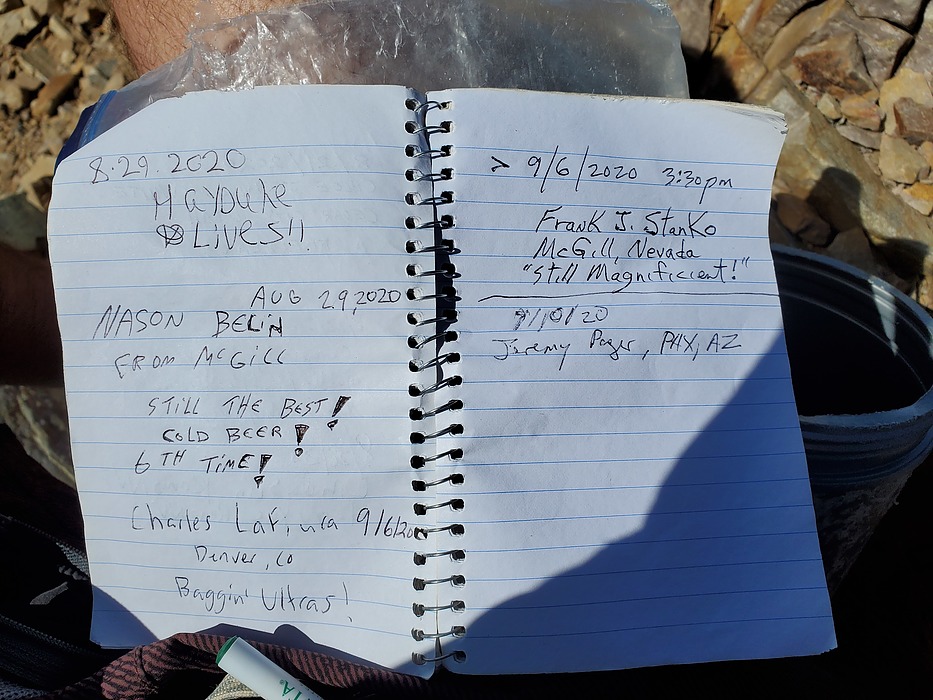 8.29.2020
HAYDUKE
LIVES!!
AUG 29, 2020
NASON BELIN
FROM MCGILL
STILL THE BEST!
COLD BEER!
6TH TIME!
Charles 9/6/20
Denver, CO
Baggin' Ultras!
> 9/6/2020 3:30pm
Frank J. Stanko
McGill, Nevada
"Still Magnificient!"
9/10/20
Jeremy, PHX, AZ